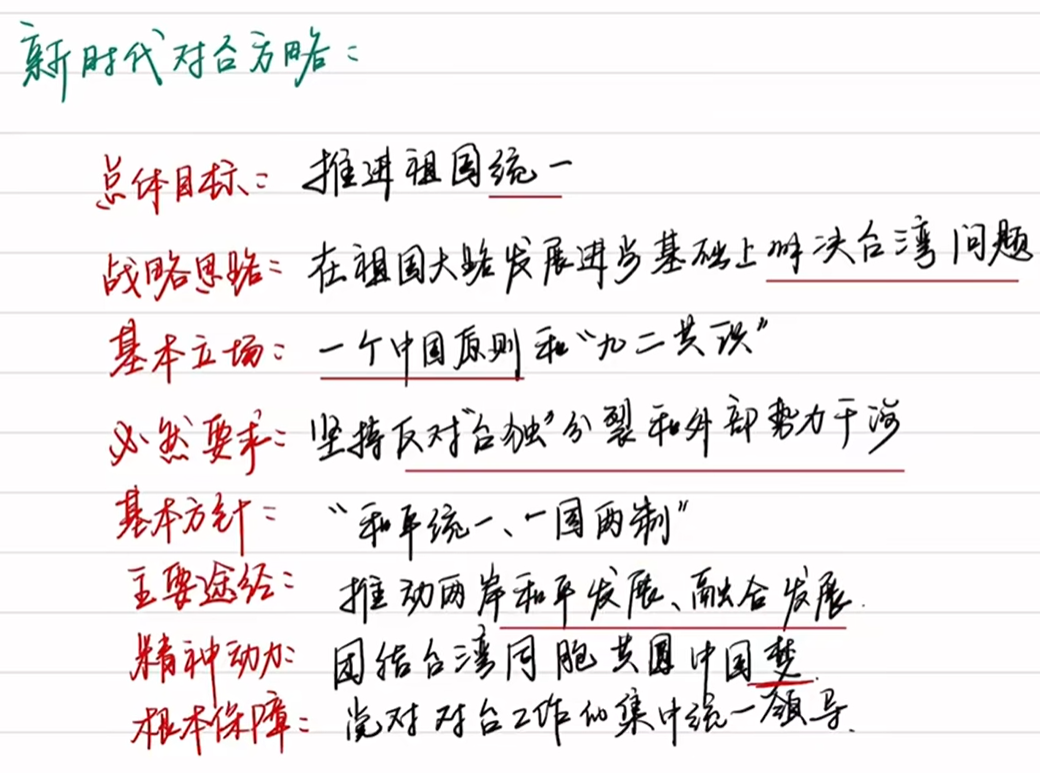 新时代对台方略：
总体目标：推进祖国统一
战略思路：在祖国大陆发展进步基础上解决台湾问题
基本立场：一个中国原则和“九二共识”
必然要求：坚持反对“台独”分裂和外部势力干涉
基本方针：“和平统一、一国两制”
主要途经：推动两岸和平发展、融合发展.
精神动力：团结台湾同胞共圆中国梦.
根本保障：党对对台工作的集中统一领导.